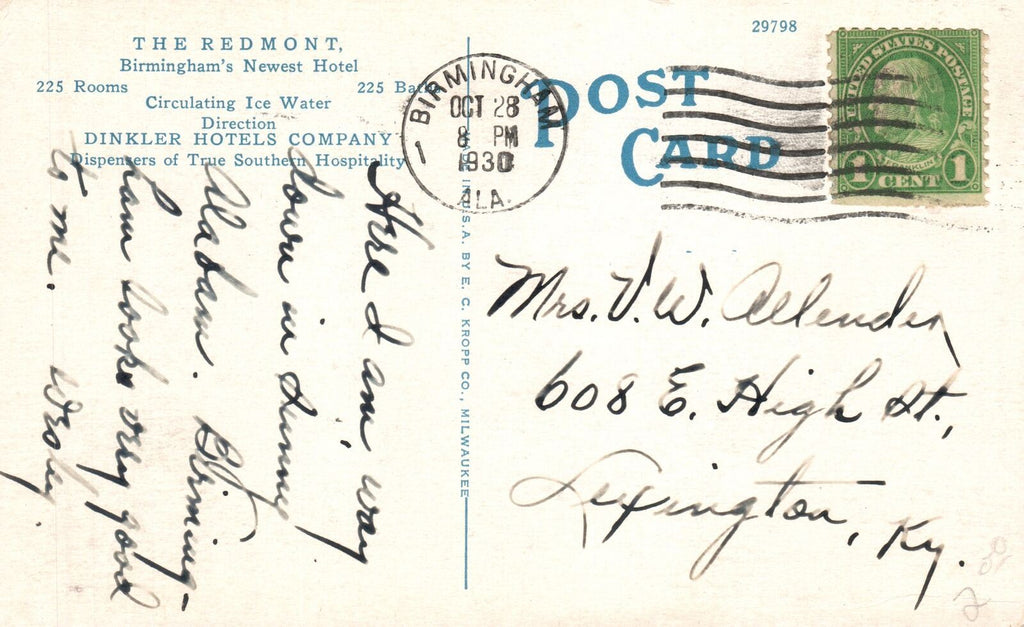 THE REDMONT,
Birmingham's Newest Hotel
225 Rooms 225 Baths
Circulating Ice Water
Direction
DINKLER HOTELS COMPANY
Dispensers of True Southern Hospitality
29798
POST
CARD
BIRMINGHAM
OCT 28
8 PM
1930
ALA.
UNITED STATES POSTAGE
FRANKLIN
1 CENT 1
IN U.S.A. BY E. C. KROPP CO., MILWAUKEE
Here I am way
down in sunny
Alabam. Birming-
ham looks very good
to me.
Mrs. V. W. Allender
608 E. High St.,
Lexington, Ky.